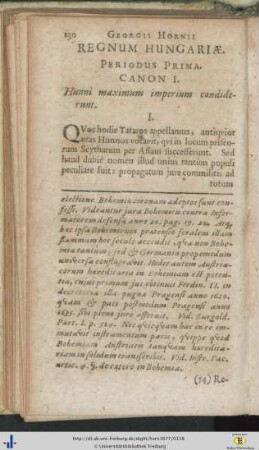 230 GEORGII HORNII
REGNUM HUNGARIÆ.
PERIODUS PRIMA.
CANON I.
Hunni maximum imperium condide-
runt.
I.
QVos hodie Tataros appellamus, antiquior
ætas Hunnos vocavit, qvi in locum prisco-
rum Scytharum per Asiam successerunt. Sed
haud dubiè nomen illud unius tantùm populi
peculiare fuit: propagatum jure commilitii ad
totum
electione Bohemiæ coronam adeptos sunt con-
fesse. Videantur jura Bohemiæ contra Infor-
matorem defensa anno 20. pag. 19. 20. Atq;
hæc ipsa Bohemorum prætensio feralem illam
flammam hoc seculo accendit, qva non Bohe-
mia tantùm, sed & Germania propemodum
universa conflagravit. Hodie autem Austria-
corum hæreditaria in Bohemiam est poten-
tia, eamq; primum jus obtinuit Ferdin. II. in
decretoria illa pugna Pragensi anno 1620,
qvam & pace postmodum Pragensi anno
1635. sibi plenè jure asseruit. Vid. Burgold.
Part. I. p. 324. Nec qvicqvam hac in re im-
mutavit instrumentum pacis, qvippe qvod
Bohemiam Austriacis tanqvam heredita-
riam in solidum transcribit. Vid. Instr. Pac.
artic. 4. §. de cætero in Bohemia.
(59) Re-
http://dl.ub.uni-freiburg.de/diglit/horn1677/0318
© Universitätsbibliothek Freiburg